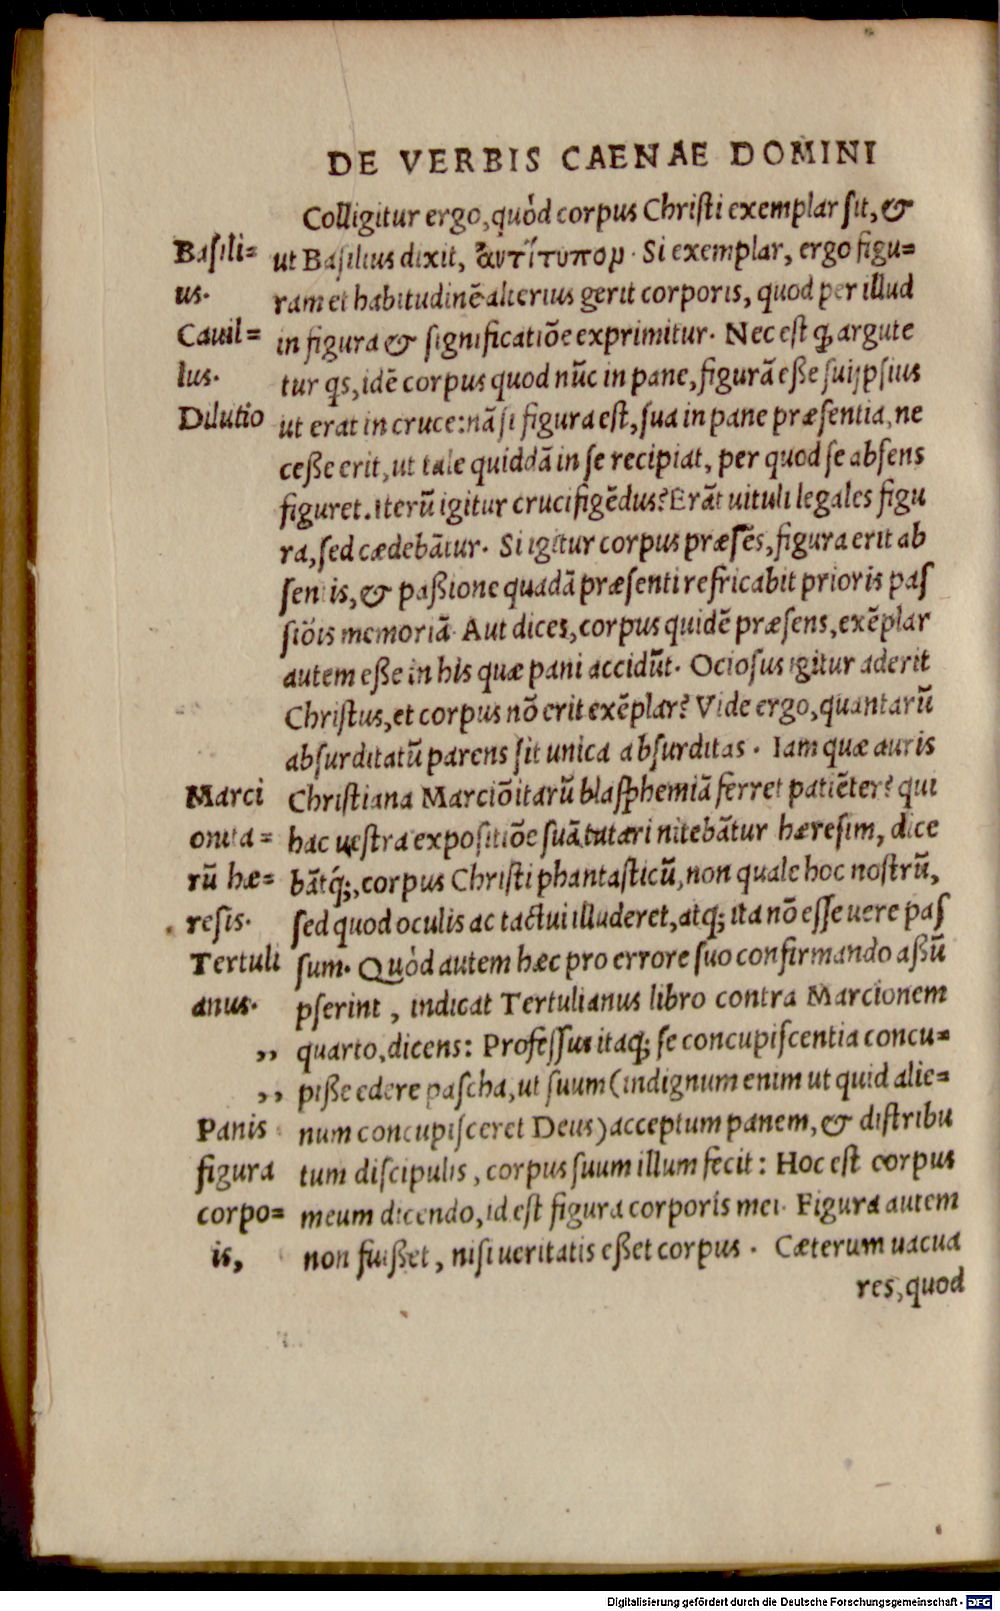 DE VERBIS CAENAE DOMINI
Colligitur ergo, quòd corpus Christi exemplar sit, &
Basili=
ut Basilius dixit, ἀντίτυπον. Si exemplar, ergo figu=
us.
ram et habitudinẽ alterius gerit corporis, quod per illud
Cauil=
in figura & significatiõe exprimitur. Nec est ꝙ argute
lus.
tur qs, idẽ corpus quod nũc in pane, figurã eße suijpsius
Dilutio
ut erat in cruce: nã si figura est, sua in pane præsentia, ne
ceße erit, ut tale quiddã in se recipiat, per quod se absens
figuret. Iterũ igitur crucifigẽdus? Erãt uituli legales figu
ra, sed cædebãtur. Si igitur corpus præsẽs, figura erit ab
sentis, & paßione quadã præsenti refricabit prioris pas
siõis memoriã. Aut dices, corpus quidẽ præsens, exẽplar
autem eße in his quæ pani accidũt. Ociosus igitur aderit
Christus, et corpus nõ erit exẽplar? Vide ergo, quantarũ
absurditatũ parens sit unica absurditas. Iam quæ auris
Marci
Christiana Marciõitarũ blasphemiã ferret patiẽter? qui
onita=
hac uestra expositiõe suã tutari nitebãtur hæresim, dice
rũ hæ=
bãtq́;, corpus Christi phantasticũ, non quale hoc nostrũ,
resis.
sed quod oculis ac tactui illuderet, atq; ita nõ esse uere pas
Tertuli
sum. Quòd autem hæc pro errore suo confirmando aßũ
anus.
pserint, indicat Tertulianus libro contra Marcionem
,, quarto, dicens: Professus itaq; se concupiscentia concu=
,, piße edere pascha, ut suum (indignum enim ut quid alie=
Panis
num concupisceret Deus) acceptum panem, & distribu
figura
tum discipulis, corpus suum illum fecit: Hoc est corpus
corpo=
meum dicendo, id est figura corporis mei. Figura autem
is,
non fuißet, nisi ueritatis eßet corpus. Cæterum uacua
res, quod
Digitalisierung gefördert durch die Deutsche Forschungsgemeinschaft - DFG